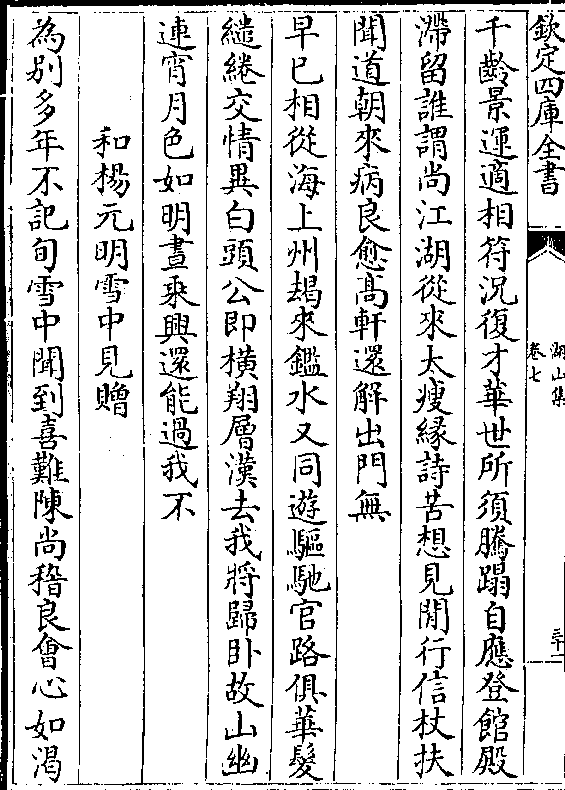 欽定四庫全書
湖山集
卷七
三十一
千齡景運適相符況復才華世所須騰蹋自應登館殿
滯留誰謂尚江湖從來太瘦緣詩苦想見閒行信杖扶
聞道朝來病良愈髙軒還解出門無
早已相從海上州朅來鑑水又同遊驅馳官路俱華髮
繾綣交情異白頭公即横翔層漢去我將歸卧故山幽
連宵月色如明晝乘興還能過我不
和楊元明雪中見贈
為别多年不記旬雪中聞到喜難陳尚稽良㑹心如渴